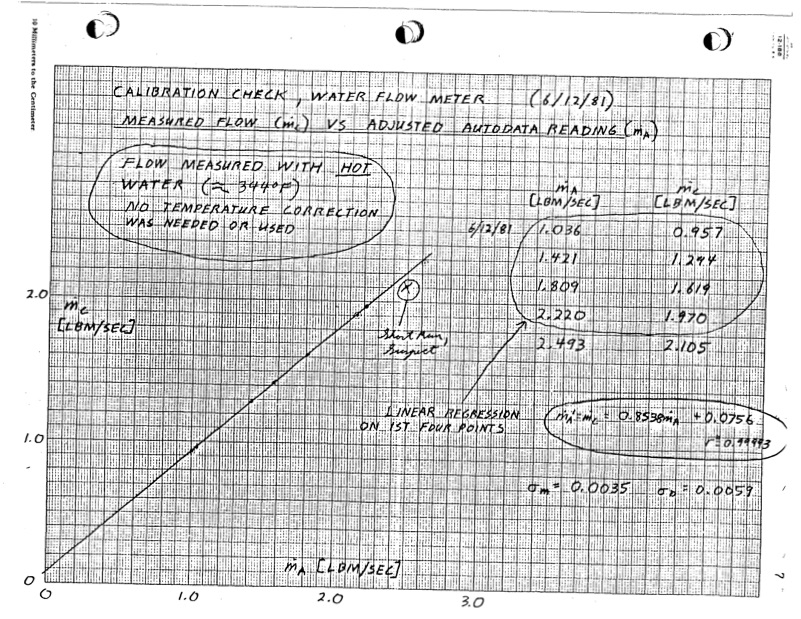 10 Millimeters to the Centimeter
CALIBRATION CHECK, WATER FLOW METER (6/12/81)
MEASURED FLOW (ṁc) VS ADJUSTED AUTODATA READING (ṁA)
FLOW MEASURED WITH HOT
WATER (≈ 344°F)
NO TEMPERATURE CORRECTION
WAS NEEDED OR USED
ṁA ṁc
[LBM/SEC] [LBM/SEC]
6/12/81 1.036 0.957
1.421 1.294
1.809 1.619
2.220 1.970
2.493 2.105
2.0
ṁc
[LBM/SEC]
X
Short Run,
Suspect
LINEAR REGRESSION
ON 1ST FOUR POINTS
ṁA'=ṁc = 0.8538ṁA + 0.0756
r²=0.99993
1.0
σm = 0.0035 σb = 0.0059
ṁA [LBM/SEC]
0
0 1.0 2.0 3.0